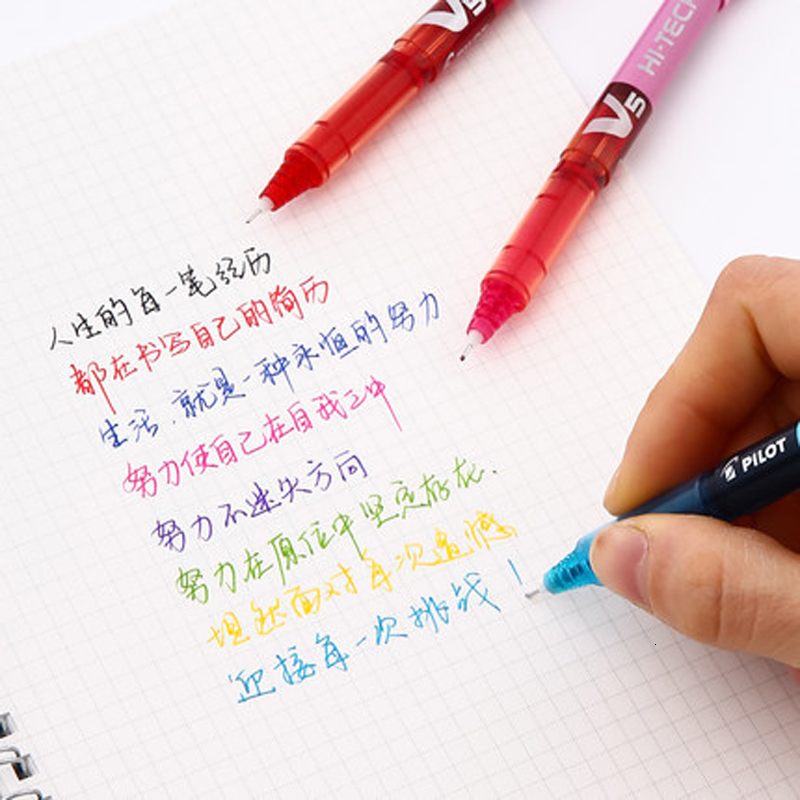 V5
V5 HI-TECP
人生的每一笔经历
都在书写自己的简历
生活.就是一种永恒的努力
努力使自己在自我之中
努力不迷失方向
努力在原位中坚定存在.
坦然面对每次遗憾
迎接每一次挑战!
PILOT